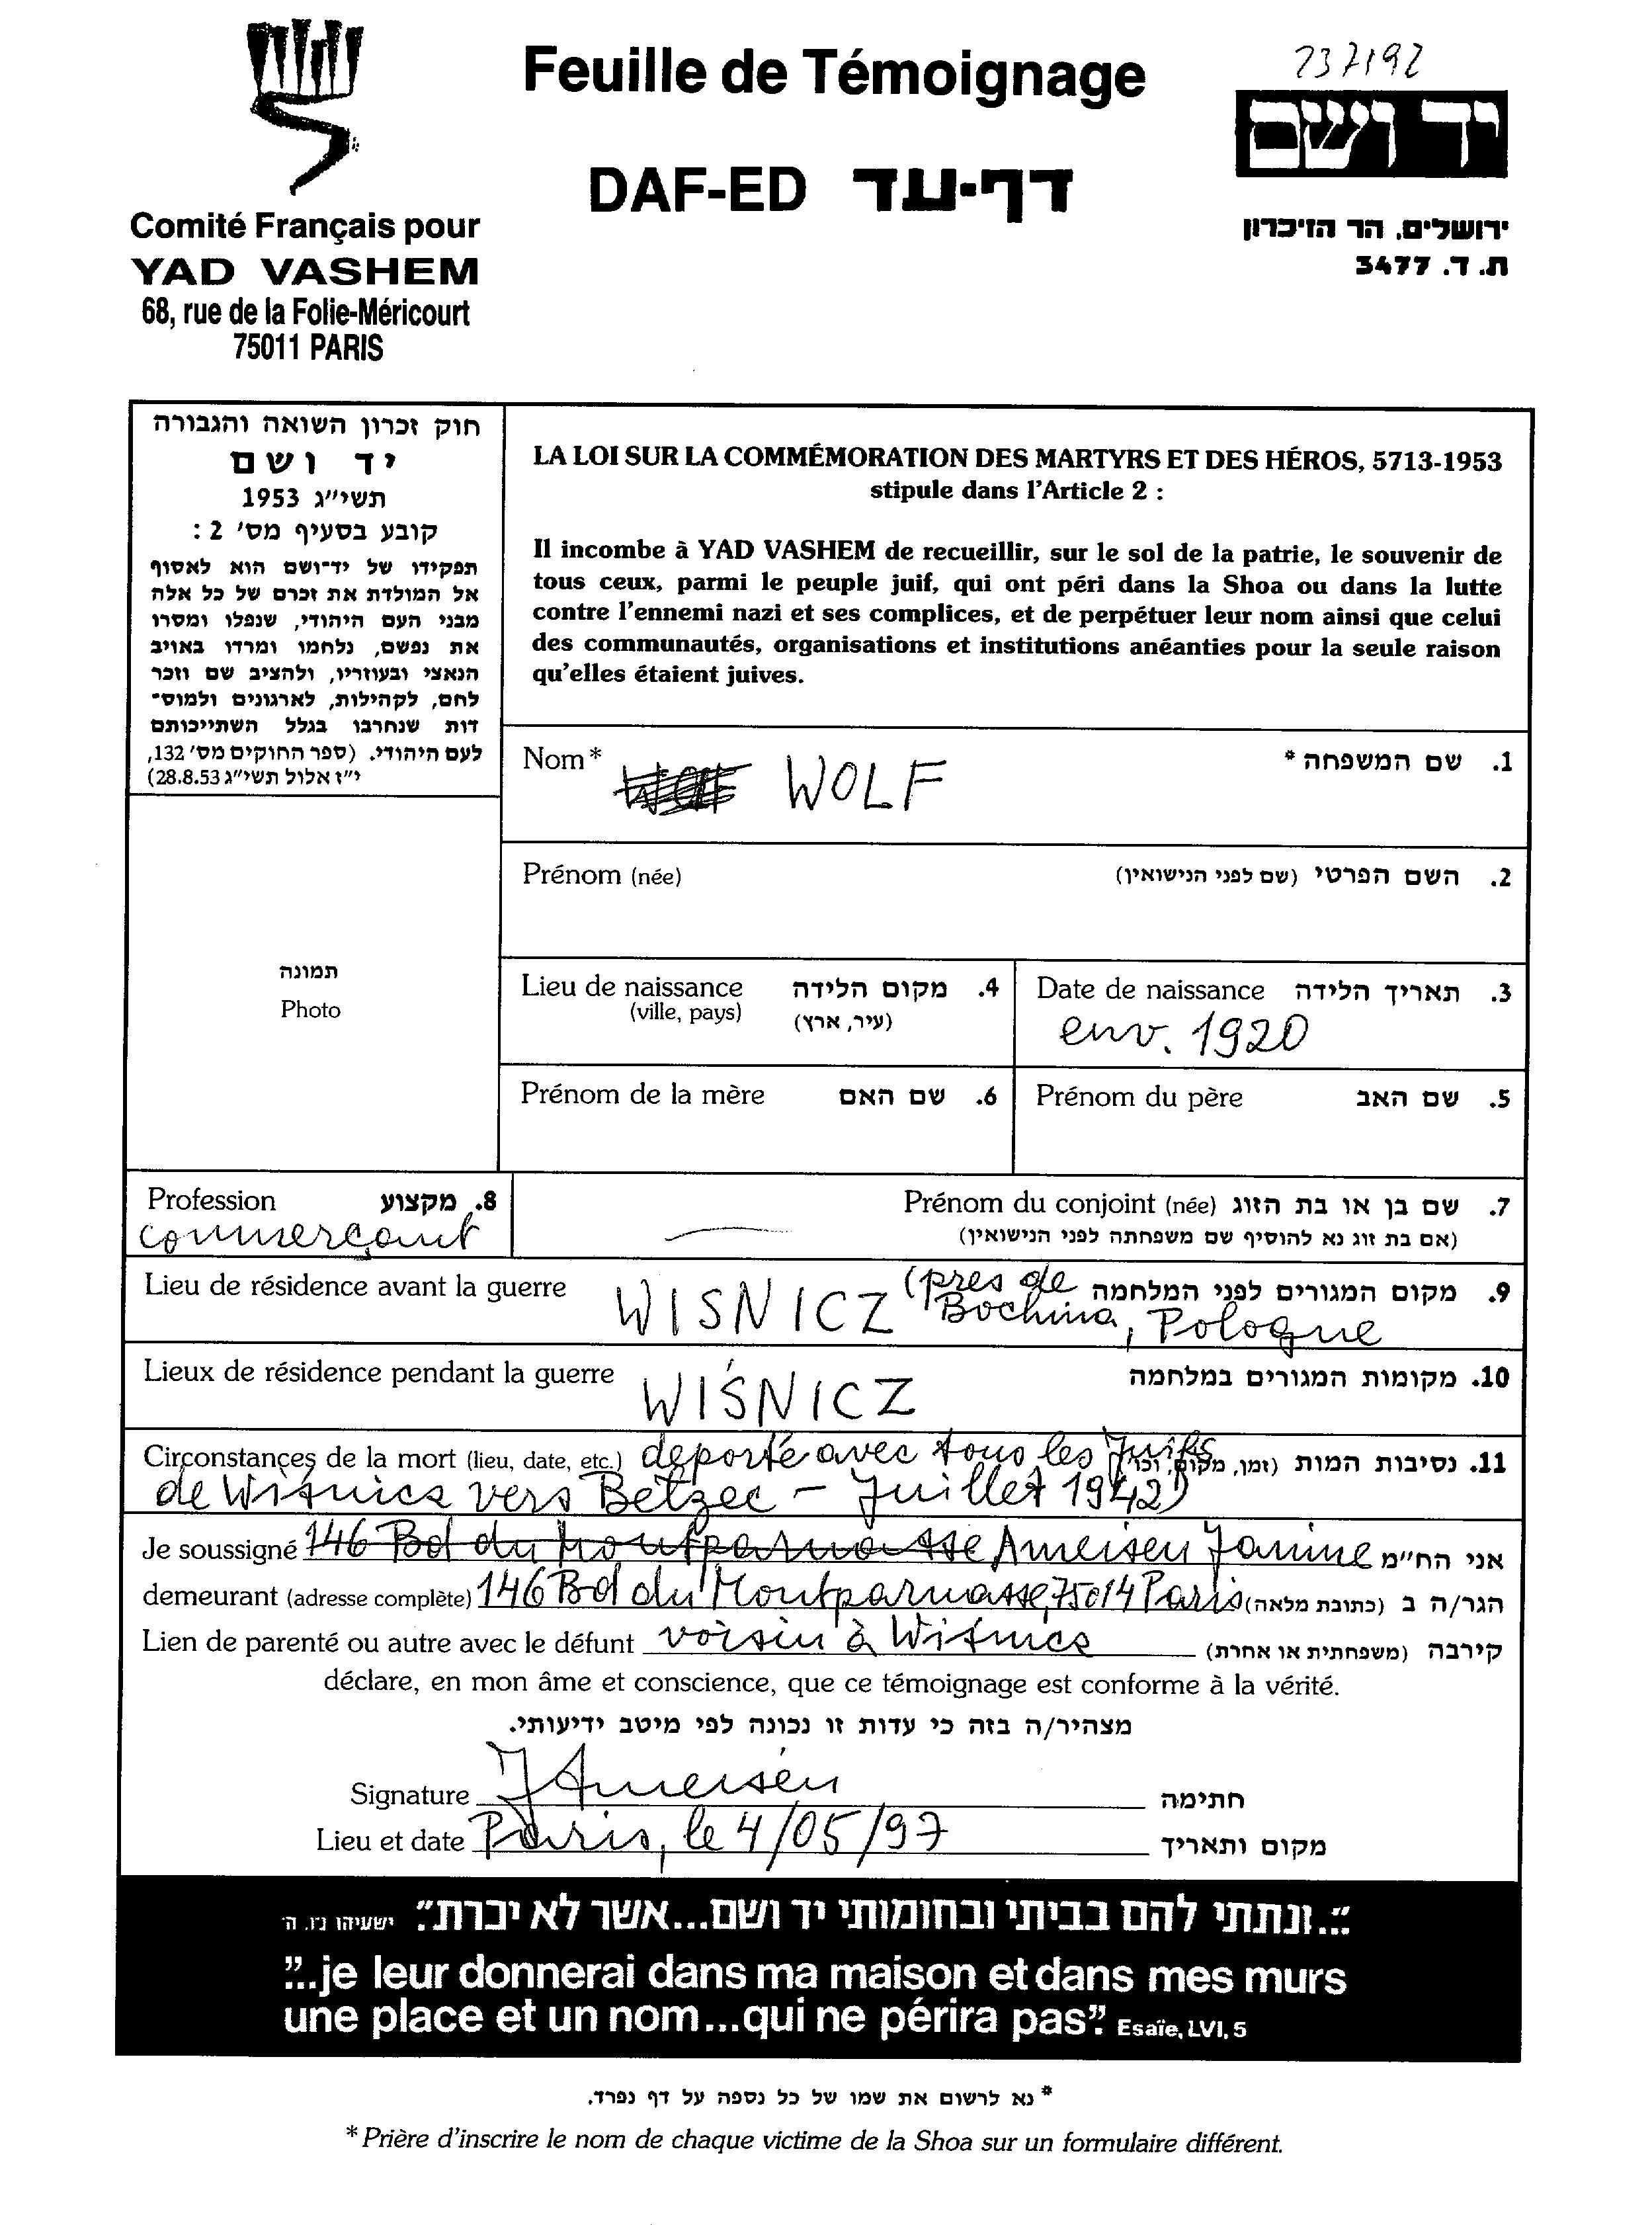 Feuille de Témoignage
DAF-ED דף-עד
Comité Français pour
YAD VASHEM
68, rue de la Folie-Méricourt
75011 PARIS
237192
יד ושם
ירושלים, הר הזיכרון
ת. ד. 3477
חוק זכרון השואה והגבורה
יד ושם
תשי"ג 1953
קובע בסעיף מס' 2 :
תפקידו של יד־ושם הוא לאסוף
אל המולדת את זכרם של כל אלה
מבני העם היהודי, שנפלו ומסרו
את נפשם, נלחמו ומרדו באויב
הנאצי ובעוזריו, ולהציב שם וזכר
להם, לקהילות, לארגונים ולמוס־
דות שנחרבו בגלל השתייכותם
לעם היהודי. (ספר החוקים מס' 132,
י"ז אלול תשי"ג 28.8.53)
LA LOI SUR LA COMMÉMORATION DES MARTYRS ET DES HÉROS, 5713-1953
stipule dans l'Article 2 :
Il incombe à YAD VASHEM de recueillir, sur le sol de la patrie, le souvenir de
tous ceux, parmi le peuple juif, qui ont péri dans la Shoa ou dans la lutte
contre l'ennemi nazi et ses complices, et de perpétuer leur nom ainsi que celui
des communautés, organisations et institutions anéanties pour la seule raison
qu'elles étaient juives.
Nom* WOLF 1. שם המשפחה *
Prénom (née) 2. השם הפרטי (שם לפני הנישואין)
תמונה
Photo
Lieu de naissance 4. מקום הלידה
(ville, pays) (עיר, ארץ)
Date de naissance 3. תאריך הלידה
env. 1920
Prénom de la mère 6. שם האם
Prénom du père 5. שם האב
Profession 8. מקצוע
commerçant
Prénom du conjoint (née) 7. שם בן או בת הזוג
(אם בת זוג נא להוסיף שם משפחתה לפני הנישואין)
Lieu de résidence avant la guerre WISNICZ (pres de 9. מקום המגורים לפני המלחמה
Bochnia, Pologne
Lieux de résidence pendant la guerre WIŚNICZ 10. מקומות המגורים במלחמה
Circonstances de la mort (lieu, date, etc.) deporté avec tous les Juifs 11. נסיבות המות (זמן, מקום, וכו')
de Wiśnicz vers Betzec – Juillet 1942)
Je soussigné 146 Bod du Montparnasse Ameisen Janine אני הח"מ
demeurant (adresse complète) 146 Bod du Montparnasse, 75014 Paris הגר/ה ב (כתובת מלאה)
Lien de parenté ou autre avec le défunt voisin à Wiśnicz קירבה (משפחתית או אחרת)
déclare, en mon âme et conscience, que ce témoignage est conforme à la vérité.
מצהיר/ה בזה כי עדות זו נכונה לפי מיטב ידיעותי.
Signature J Ameisen חתימה
Lieu et date Paris, le 4/05/97 מקום ותאריך
"...ונתתי להם בביתי ובחומותי יד ושם...אשר לא יכרת". ישעיהו נ"ו. ה'
"...je leur donnerai dans ma maison et dans mes murs
une place et un nom...qui ne périra pas". Esaïe, LVI, 5
* נא לרשום את שמו של כל נספה על דף נפרד.
* Prière d'inscrire le nom de chaque victime de la Shoa sur un formulaire différent.